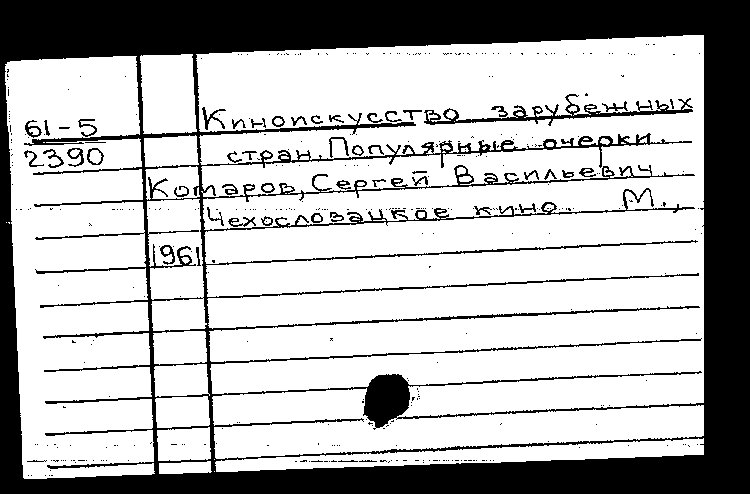 61-5 Киноискусство зарубежных
2390 стран. Популярные очерки.
Комаров, Сергей Васильевич.
Чехословацкое кино. М.,
1961.